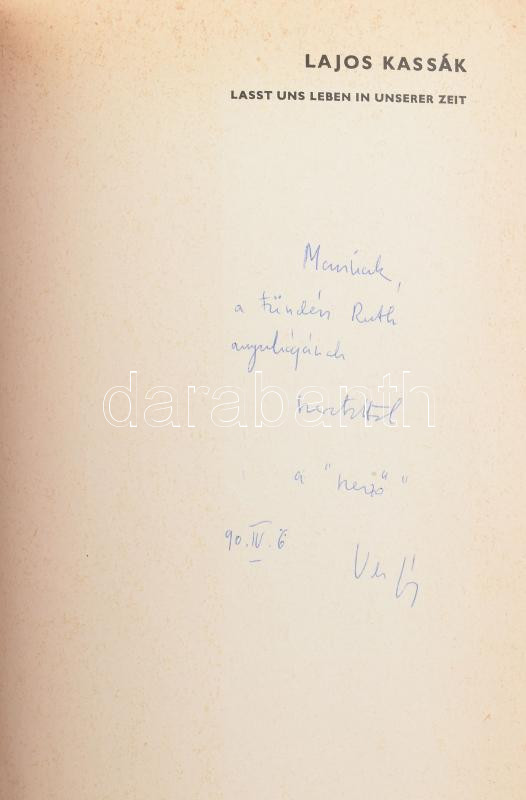 LAJOS KASSÁK
LASST UNS LEBEN IN UNSERER ZEIT
a tündéri Ruth
anyukájának
darabanth
szeretettel
a "szerző"
90. IV. 6